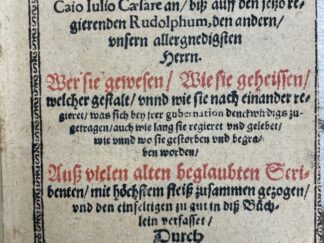 Caio Iulio Cæsare an / biß auff den jetzo re-
gierenden Rudolphum, den andern /
vnsern allergnedigsten
Herrn.
Wer sie gewesen / Wie sie geheissen /
welcher gestalt / vnnd wie sie nach einander re-
gieret / was sich bey jrer gubernation denckwirdigs zu-
getragen / auch wie lang sie regieret vnd gelebet /
wie vnnd wo sie gestorben vnd begra-
ben worden /
Auß vielen alten beglaubten Scri-
benten / mit höchstem fleiß zusammen gezogen /
vnd den einfeltigen zu gut in diß Büch-
lein verfasset /
Durch